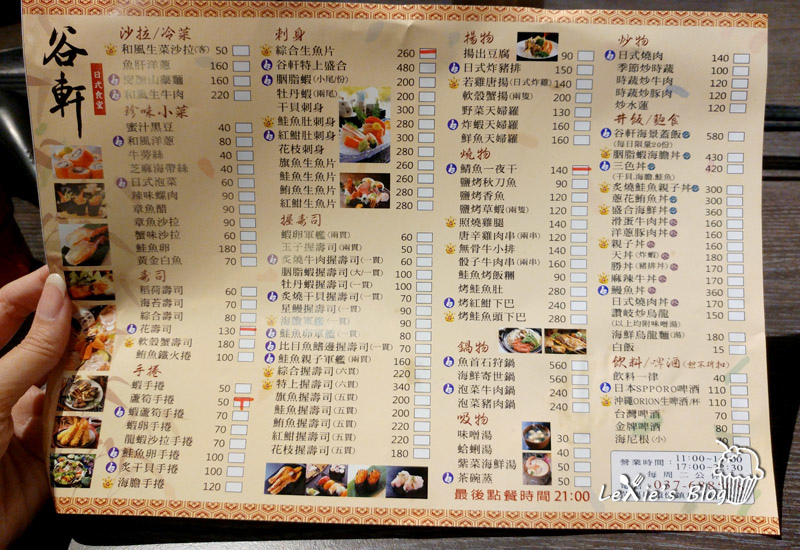 谷軒
日式食堂
沙拉/冷菜
和風生菜沙拉(客) 50
魚肝洋蔥 160
160
和風生牛肉 220
珍味小菜
蜜汁黑豆 40
和風洋蔥 80
牛蒡絲 40
芝麻海帶絲 40
日式泡菜 60
辣味螺肉 90
章魚醋 90
章魚沙拉 90
蟹味沙拉 90
鮭魚卵 180
黃金白魚 70
壽司
稻荷壽司 50
海苔壽司 70
綜合壽司 80
花壽司 130
軟殼蟹壽司 180
鮪魚鐵火捲 100
手捲
蝦手捲 50
蘆筍手捲 50
蝦蘆筍手捲 70
蝦卵手捲 70
龍蝦沙拉手捲 70
鮭魚卵手捲 100
炙干貝手捲 100
海膽手捲 120
刺身
綜合生魚片 260
谷軒特上盛合 480
胭脂蝦(小尾/份) 380
牡丹蝦(兩尾) 200
干貝刺身 280
鮭魚肚刺身 300
紅魽肚刺身 300
花枝刺身 180
旗魚生魚片 280
鮭魚生魚片 280
鮪魚生魚片 280
紅魽生魚片 280
握壽司
蝦卵軍艦(兩貫) 60
玉子握壽司(兩貫) 50
炙燒牛肉握壽司(一貫) 60
胭脂蝦握壽司(大/一貫) 100
牡丹蝦握壽司(一貫) 100
炙燒干貝握壽司(一貫) 70
星鰻握壽司(一貫) 90
海膽軍艦(一貫) 90
鮭魚卵軍艦(一貫) 80
比目魚鰭邊握壽司(一貫) 70
鮭魚親子軍艦(兩貫) 160
綜合握壽司(六貫) 220
特上握壽司(六貫) 340
旗魚握壽司(五貫) 200
鮭魚握壽司(五貫) 200
鮪魚握壽司(五貫) 220
紅魽握壽司(五貫) 220
花枝握壽司(五貫) 180
揚物
揚出豆腐 90
日式炸豬排 150
若雞唐揚(日式炸雞) 140
軟殼蟹揚(兩隻) 200
野菜天婦羅 130
炸蝦天婦羅 200
鮮魚天婦羅 180
燒物
鯖魚一夜干 140
鹽烤秋刀魚 90
鹽烤香魚 120
鹽烤草蝦(兩隻) 120
照燒雞腿 140
唐辛雞肉串(兩串) 120
無骨牛小排 240
骰子牛肉串(兩串) 200
鮭魚烤飯糰 90
烤鮭魚肚 200
烤紅魽下巴 240
烤鮭魚頭下巴 280
鍋物
魚首石狩鍋 560
海鮮寄世鍋 560
泡菜牛肉鍋 240
泡菜豬肉鍋 240
吸物
味噌湯 30
蛤蜊湯 40
紫菜海鮮湯 50
茶碗蒸 50
最後點餐時間 21:00
炒物
日式燒肉 140
季節炒時蔬 100
時蔬炒牛肉 120
時蔬炒豚肉 120
炒水蓮 120
丼飯/麵食
谷軒海景蓋飯 580
(每日限量20份)
胭脂蝦海膽丼 430
三色丼 420
(干貝.海膽.鮭魚)
炙燒鮭魚親子丼 300
蔥花鮪魚丼 300
盛合海鮮丼 360
滑蛋牛肉丼 170
洋蔥豚肉丼 160
親子丼 160
天丼(炸蝦) 180
勝丼(豬排丼) 170
麻辣牛丼 160
鰻魚丼 360
日式燒肉丼 170
讚岐炒烏龍 150
(以上均附味噌湯)
海鮮烏龍麵(湯) 180
白飯 15
飲料/啤酒(恕不折扣)
飲料一律 40
日本SPPORO啤酒 110
沖繩ORION生啤酒/杯 110
台灣啤酒 70
金牌啤酒 80
海尼根(小) 80
營業時間:11:00~
17:00~
每周二公休
LeXie's Blog